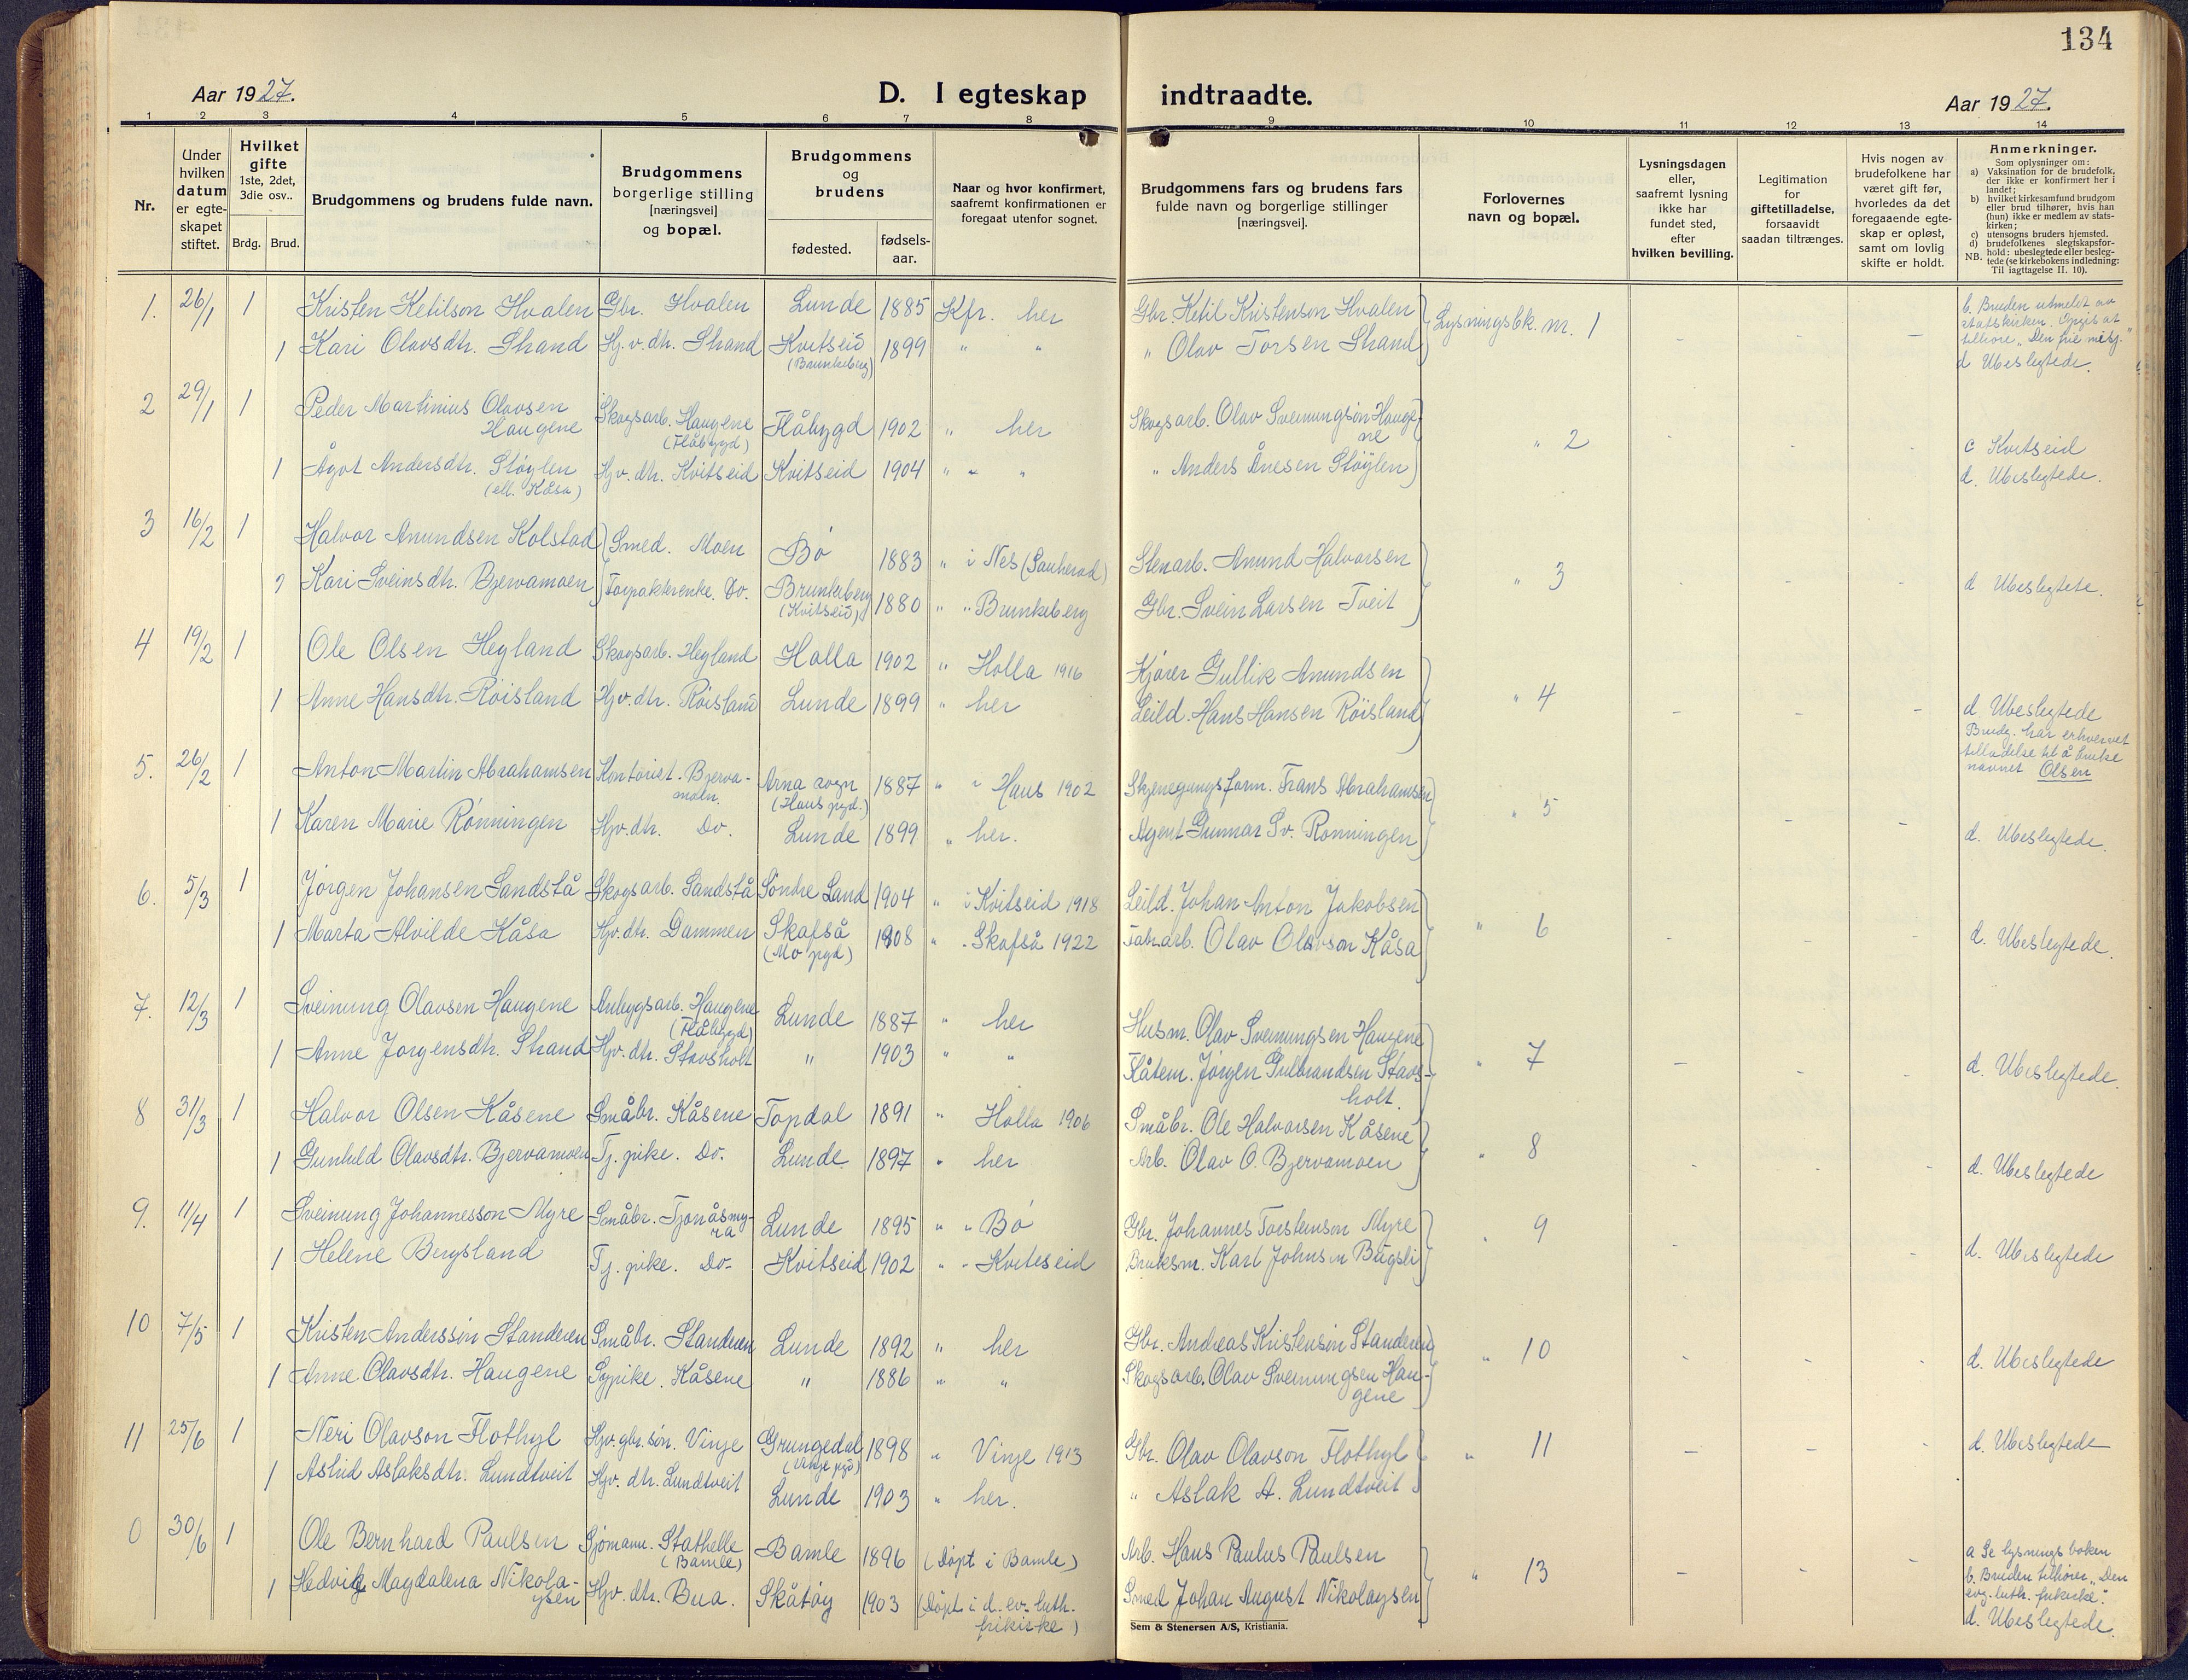 134
Aar 1927.
D. I egteskap indtraadte.
Aar 1927.
1 2 3 4 5 6 7 8 9 10 11 12 13 14
Nr.
Under hvilken datum er egteskapet stiftet.
Hvilket gifte 1ste, 2det, 3die osv..
Brdg. Brud.
Brudgommens og brudens fulde navn.
Brudgommens borgerlige stilling [næringsvei] og bopæl.
Brudgommens og brudens
fødested.
fødsels-aar.
Naar og hvor konfirmert, saafremt konfirmationen er foregaat utenfor sognet.
Brudgommens fars og brudens fars fulde navn og borgerlige stillinger [næringsvei].
Forlovernes navn og bopæl.
Lysningsdagen eller, saafremt lysning ikke har fundet sted, efter hvilken bevilling.
Legitimation for giftetilladelse, forsaavidt saadan tiltrænges.
Hvis nogen av brudefolkene har været gift før, hvorledes da det foregaaende egteskap er opløst, samt om lovlig skifte er holdt.
Anmerkninger.
Som oplysninger om:
a) Vaksination for de brudefolk, der ikke er konfirmert her i landet;
b) hvilket kirkesamfund brudgom eller brud tilhører, hvis han (hun) ikke er medlem av statskirken;
c) utensogns bruders hjemsted.
d) brudefolkenes slegtskapsforhold: ubeslegtede eller beslegtede (se kirkebokens indledning: Til iagttagelse II. 10).
NB.
1. 26/1 1 Kristen Ketilson Hvalen Gbr. Hvalen Lunde 1885 Kfr. her Gbr. Ketil Kristenson Hvalen Lysningsbk. nr. 1 b. Bruden utmeldt av statskirken. Opgis at tilhøre "Den frie misj."
1 Kari Olavsdtr. Strand Hj.v.dtr. Strand Kvitseid (Brunkeberg) 1899 " " " Olav Torsen Strand d Ubeslegtede.
2 29/1 1 Peder Martinius Olavsen Haugene Skogsarb. Haugene (Flåbygd) Flåbygd 1902 " her Skogsarb. Olav Sveinungsøn Haugene " 2 c Kvitseid
1 Ågot Andersdtr. Støylen (ell. Kåsa) Hjv. dtr. Kvitseid Kvitseid 1904 " " " " Anders Ånesen Støylen d. Ubeslegtede.
3 16/2 1 Halvor Anundsen Kolstad Smed. Moen Bø 1883 " i Nes (Sauherad) Stenarb. Anund Halvorsen " 3 d Ubeslegtete.
? Kari Sveinsdtr. Bjervamoen Forpakterenke. Do. Brunkeberg (Kvitseid) 1880 " " Brunkeberg Gbr. Svein Larsen Tveit
4 19/2 1 Ole Olsen Hegland Skogsarb. Hegland Holla 1902 " Holla 1916 Kjører Gullik Anundsen " 4
1 Anne Hansdtr. Røisland Hjv. dtr. Røisland Lunde 1899 " her Leild. Hans Hansen Røisland d. Ubeslegtede
Brudg. har erhvervet tilladelse til å bruke navnet Olsen
5. 26/2 1 Anton Martin Abrahamsen Kontorist. Bjervamoen. Arna sogn (Haus pgd.) 1887 " " Haus 1902 Skjenegangsform. Frans Abrahamsen " 5
1 Karen Marie Rønningen Hjv. dtr. Do. Lunde 1899 " her. Agent Gunnar Sv. Rønningen d. Ubeslegtede.
6. 5/3 1 Jørgen Johansen Sandstå Skogsarb. Sandstå Søndre Land 1904 " i Kvitseid 1918 Leild. Johan Anton Jakobsen " 6
1 Marta Alvilde Kåsa Hjv. dtr. Dammen Skafså (Mo pgd) 1908 " " Skafså 1922 Fabr.arb. Olav Olavson Kåsa d. Ubeslegtede.
7. 12/3 1 Sveinung Olavsen Haugene Anlegsarb. Haugene (Flåbygd) Lunde 1887 " her Husm. Olav Sveinungsen Haugene " 7
1 Anne Jørgensdtr. Strand Hjv. dtr. Stavsholt " 1903 " " Flåtem. Jørgen Gulbrandsen Stavsholt. d. Ubeslegtede.
8 31/3 1 Halvor Olsen Kåsene Småbr. Kåsene Topdal 1891 " Holla 1906 Småbr. Ole Halvorsen Kåsene " 8
1 Gunhild Olavsdtr. Bjervamoen Tj. pike. Do. Lunde 1897 " her Arb. Olav O. Bjervamoen d. Ubeslegtede
9. 11/4 1 Sveinung Johannesson Myre Småbr. Tjonåsmyra Lunde 1895 " " Bø Gbr. Johannes Torstenson Myre " 9
1 Helene Bergsland Tj. pike. Do. Kvitseid 1902 " " Kviteseid Bruksm. Karl Johnsen d. Ubeslegtede
10 7/5 1 Kristen Anderssøn Standeren Småbr. Standeren Lunde 1892 " her Gbr. Andreas Kristensøn Standeren " 10
1 Anne Olavsdtr. Haugene Sypike. Kåsene " 1886 " " Skogsarb. Olav Sveinungsen Haugene d. Ubeslegtede
11 25/6 1 Neri Olavson Flothyl Hjv. gbr.søn. Vinje Grungedal (Vinje pgd) 1898 " Vinje 1913 Gbr. Olav Olavson Flothyl " 11 d. Ubeslegtede
1 Astrid Aslaksdtr. Lundtveit Hjv. dtr. Lundtveit Lunde 1903 " her. " Aslak A. Lundtveit
0 30/6 1 Ole Bernhard Paulsen Sjømann. Stathelle (Bamle) Bamle 1896 (Døpt i Bamle) Arb. Hans Paulus Paulsen " 13 a Se lysningsboken
1 Hedvig Magdalena Nikolaysen Hjv. dtr. Bua. Skåtøy 1903 (Døpt i d. ev. luth. frikirke) Smed Johan August Nikolaysen b. Bruden tilhører "Den evg. luth. frikirke".
d. Ubeslegtede.
Sem & Stenersen A/S, Kristiania.